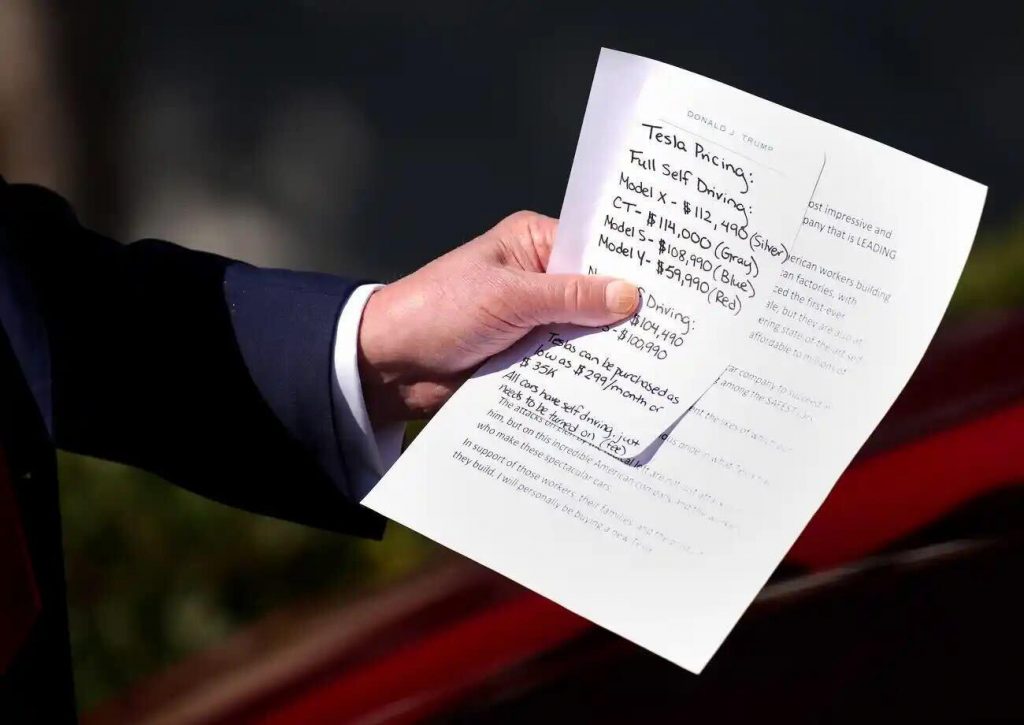 DONALD J. TRUMP
Tesla Pricing:
Full Self Driving:
Model X - $112,490 (Silver)
CT - $114,000 (Gray)
Model S - $108,990 (Blue)
Model Y - $59,990 (Red)
Driving:
$104,490
- $100,990
Teslas can be purchased as
low as $299/month or
$35K
All cars have self driving, just
needs to be turned on (fee)
ost impressive and
pany that is LEADING
erican workers building
an factories, with
ced the first-ever
ale, but they are also at
ering state-of-the-art
affordable to millions of
car company to succeed in
among the SAFEST
The attacks on
him, but on this incredible American company, and the
who make these spectacular cars.
In support of those workers, their families, and the
they build, I will personally be buying a new Tesla